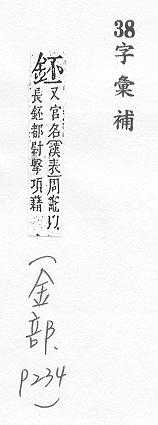 38字彙補
鉟
又官名漢表周竈以
長鉟都尉擊項籍
(金部、p234)